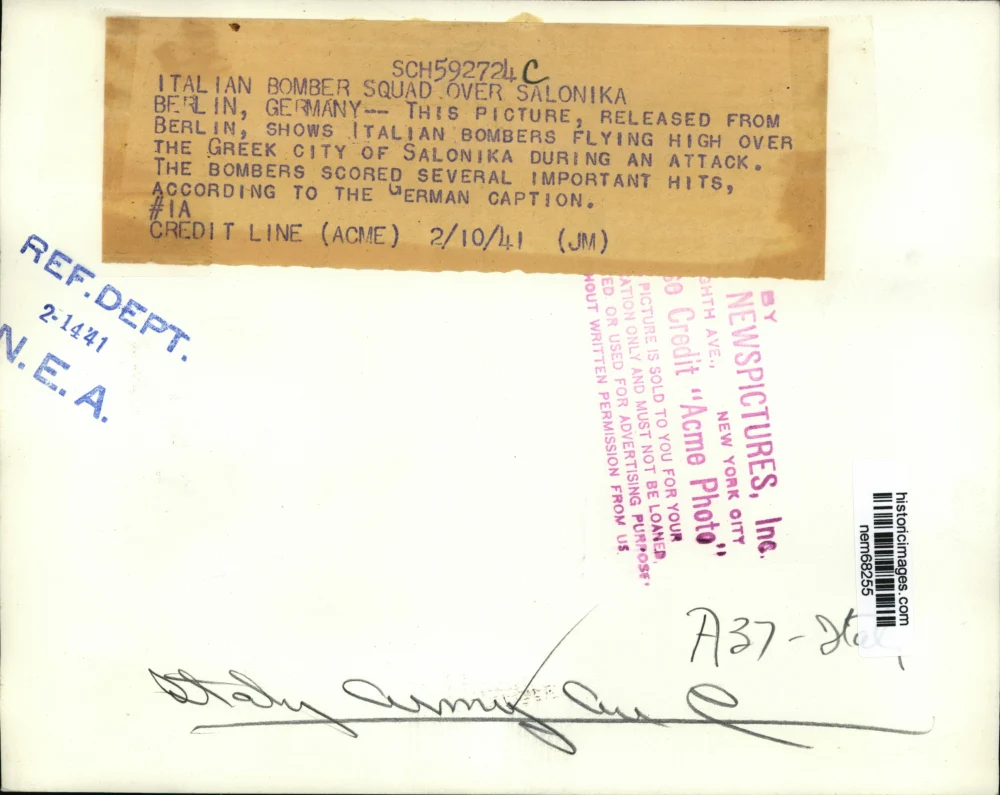 SCH592724 C
ITALIAN BOMBER SQUAD OVER SALONIKA
BERLIN, GERMANY-- THIS PICTURE, RELEASED FROM
BERLIN, SHOWS ITALIAN BOMBERS FLYING HIGH OVER
THE GREEK CITY OF SALONIKA DURING AN ATTACK.
THE BOMBERS SCORED SEVERAL IMPORTANT HITS,
ACCORDING TO THE GERMAN CAPTION.
#1A
CREDIT LINE (ACME) 2/10/41 (JM)
REF. DEPT.
2-14-41
N.E.A.
BY
NEWSPICTURES, Inc.
GHTH AVE., NEW YORK CITY
so Credit "Acme Photo"
PICTURE IS SOLD TO YOU FOR YOUR
ATION ONLY AND MUST NOT BE LOANED,
ED OR USED FOR ADVERTISING PURPOSE
HOUT WRITTEN PERMISSION FROM US.
historicimages.com
nem68255
A37 - Ital
Italy Army